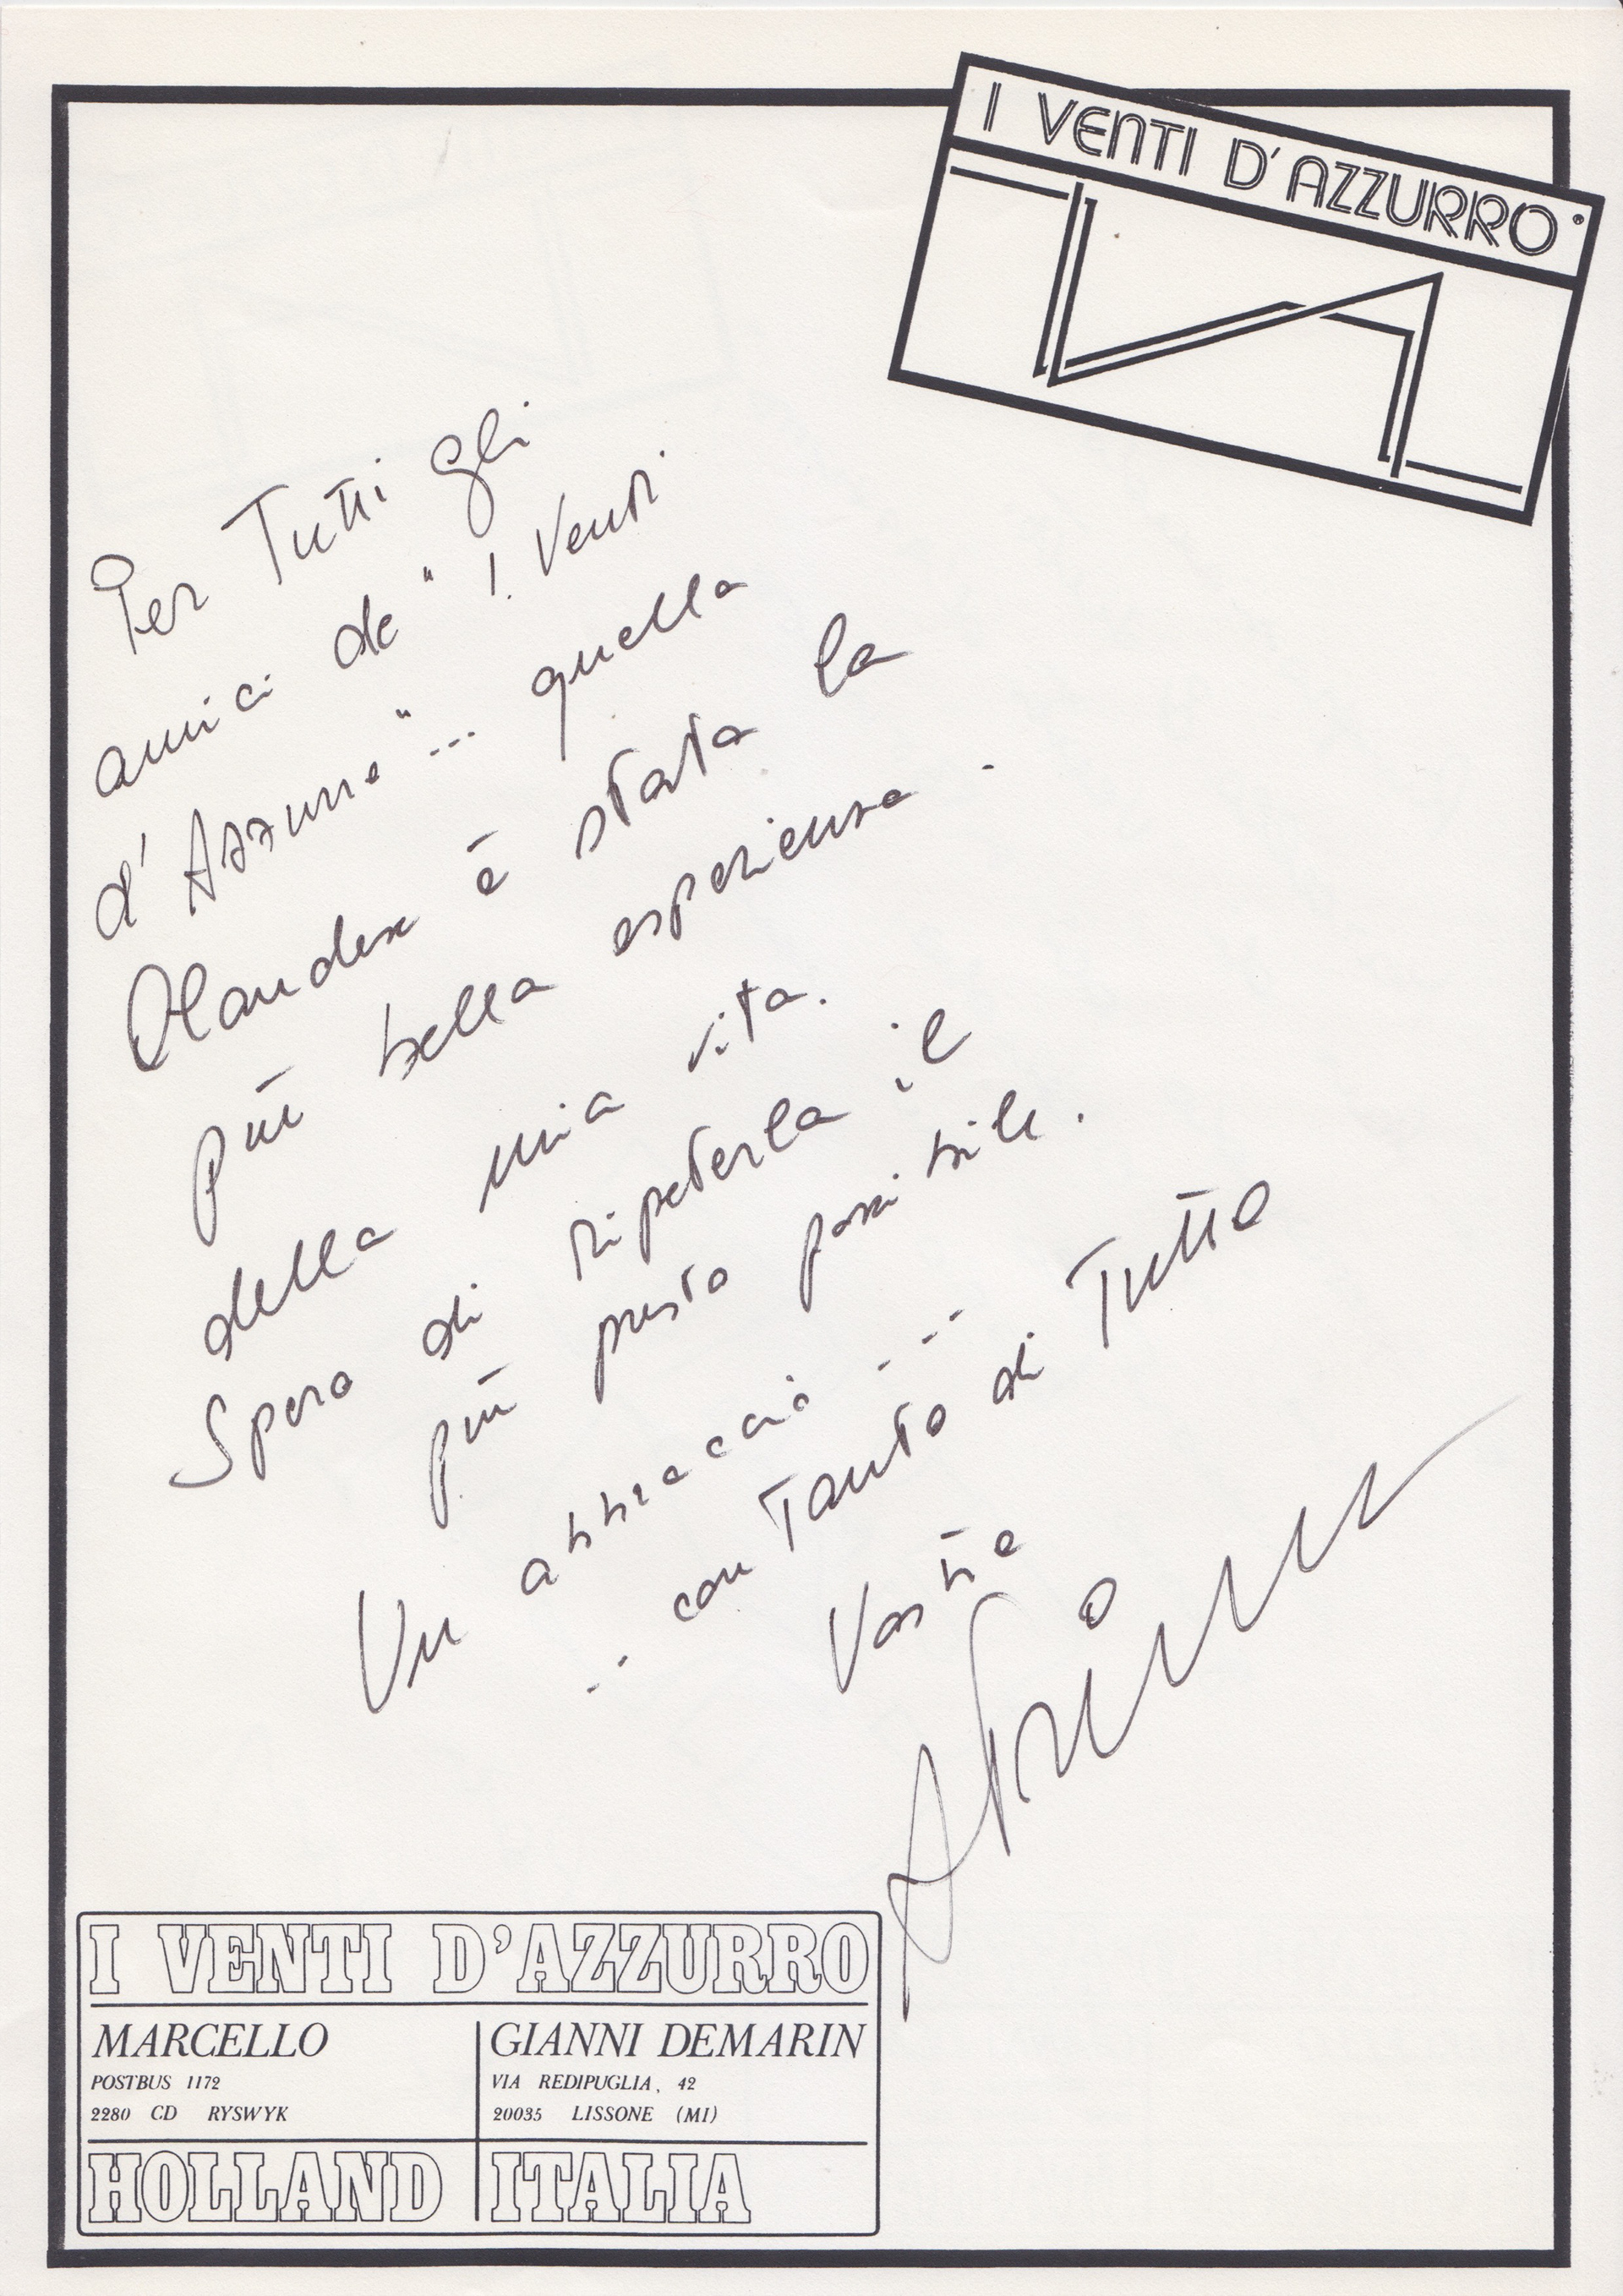 I VENTI D'AZZURRO
Per Tutti gli
amici de "I Venti
d'Azzurro"... quella
Olandese è stata la
più bella esperienza
della mia vita.
Spero di ripeterla il
più presto possibile.
Un abbraccio...
.. con Tanto di Tutto
Vostro
I VENTI D'AZZURRO
MARCELLO
POSTBUS 1172
2280 CD RYSWYK
HOLLAND
GIANNI DEMARIN
VIA REDIPUGLIA, 42
20035 LISSONE (MI)
ITALIA